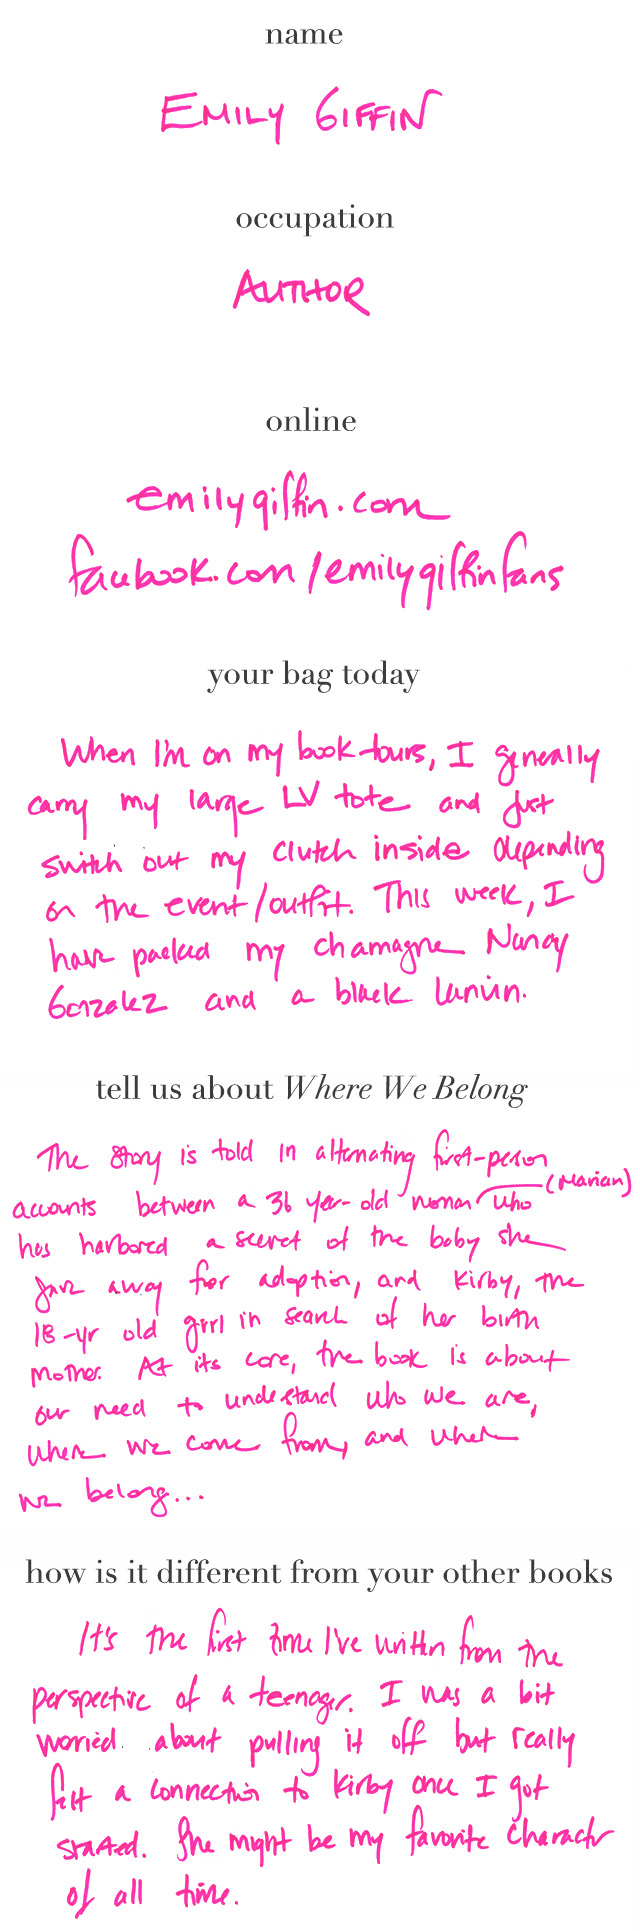 name
EMILY GIFFIN
occupation
AUTHOR
online
emilygiffin.com
facebook.com/emilygiffinfans
your bag today
When I'm on my book tours, I generally
carry my large LV tote and just
switch out my clutch inside depending
on the event/outfit. This week, I
have packed my chamagne Nancy
Gonzalez and a black Lanvin.
tell us about Where We Belong
The story is told in alternating first-person
accounts between a 36 year-old woman (Marian) who
has harbored a secret of the baby she
gave away for adoption, and Kirby, the
18-yr old girl in search of her birth
mother. At its core, the book is about
our need to understand who we are,
where we come from, and where
we belong...
how is it different from your other books
It's the first time I've written from the
perspective of a teenager. I was a bit
worried about pulling it off but really
felt a connection to Kirby once I got
started. She might be my favorite character
of all time.